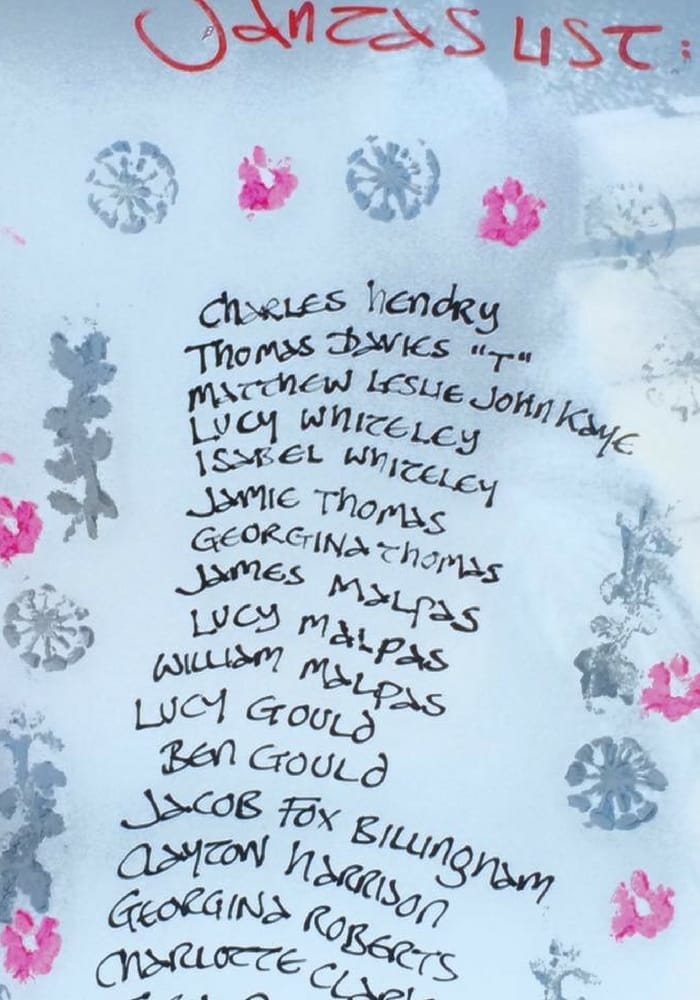 Santas List:
Charles Hendry
Thomas Davies "T"
Matthew Leslie John Kaye
Lucy Whiteley
Isabel Whiteley
Jamie Thomas
Georgina Thomas
James Malpas
Lucy Malpas
William Malpas
Lucy Gould
Ben Gould
Jacob Fox Billingham
Clayton Harrison
Georgina Roberts
Charlotte